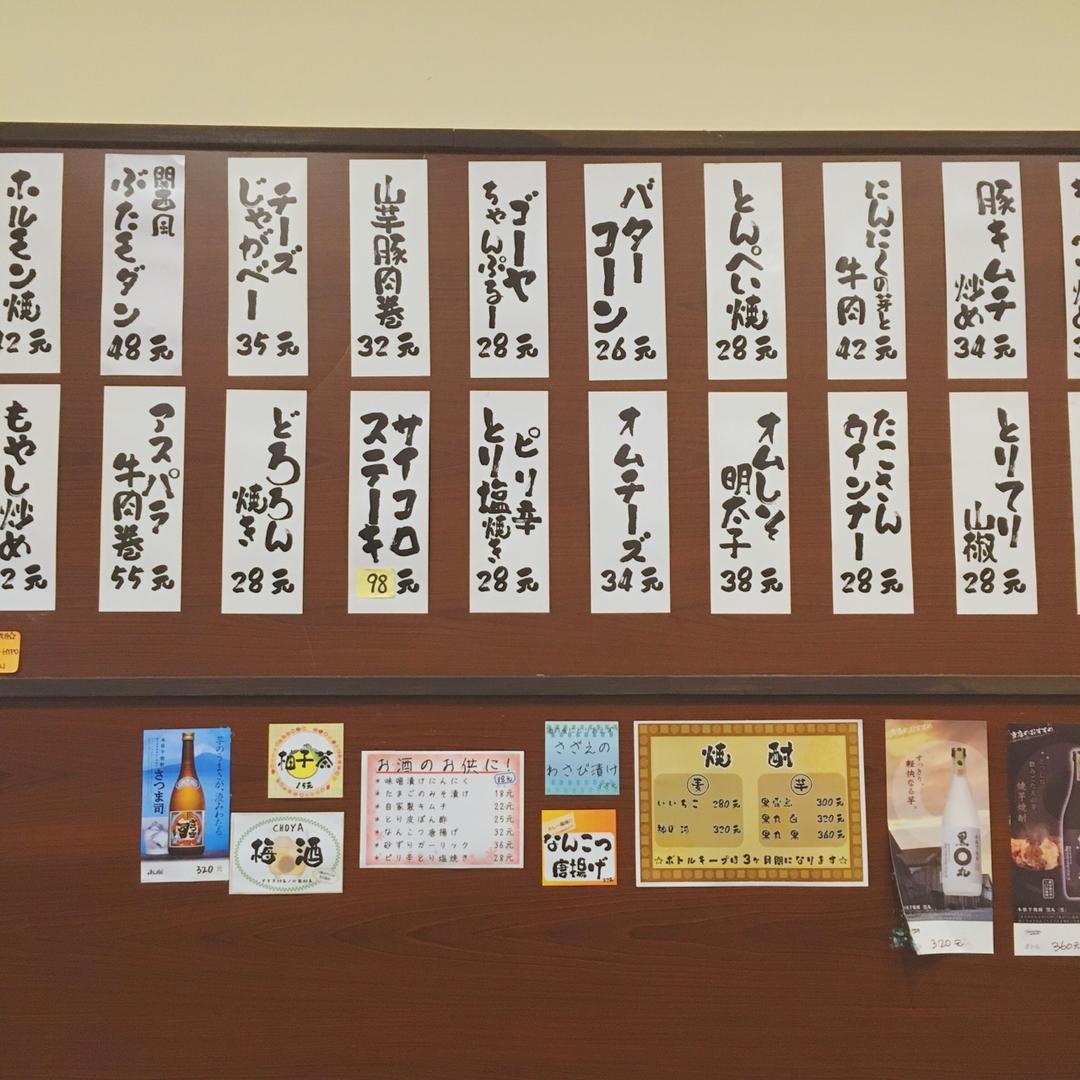 ホルモン焼
2元
関西風
ぶたモダン
48元
チーズ
じゃがべー
35元
山芋豚肉巻
32元
ゴーヤ
ちゃんぷるー
28元
バター
コーン
26元
とんぺい焼
28元
にんにくの芽と
牛肉
42元
豚キムチ
炒め
34元
もやし炒め
2元
アスパラ
牛肉巻
55元
どろろん
焼き
28元
サイコロ
ステーキ
98元
ピリ辛
とり塩焼き
28元
オムチーズ
34元
オムレツ
明太子
38元
たこさん
ウインナー
28元
とりてり
山椒
28元
芋のうまさが、澄みわたる。
さつま司
Asahi
320元
柚子茶
15元
CHOYA
梅酒
お酒のお供に!
* 味噌漬けにんにく
* たまごのみそ漬け 18元
* 自家製キムチ 22元
* とり皮ぽん酢 25元
* なんこつ唐揚げ 32元
* 砂ずりガーリック 36元
* ピリ辛とり塩焼き 28元
さざえの
わさび漬け
なんこつ
唐揚げ
焼酎
麦
いいちこ 280元
320元
芋
300元
黒丸 白 320元
黒丸 黒 360元
☆ボトルキープは3ヶ月間になります☆
当店のおすすめ
すっきり、
軽快なる芋。
黒丸
320元
当店のおすすめ
焼芋焼酎
ボトル 360元